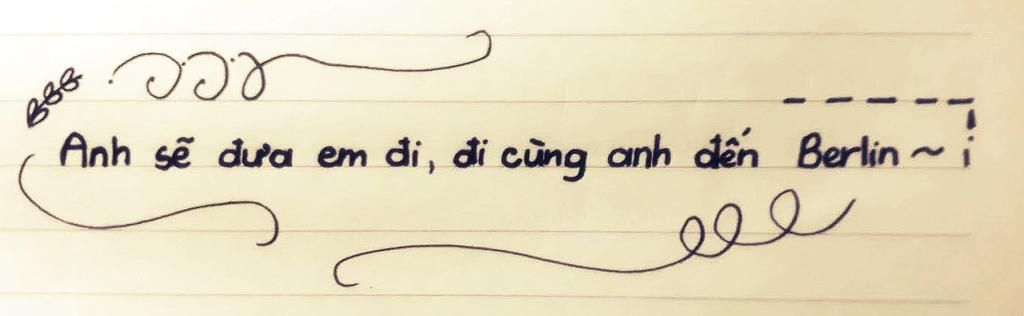 Anh sẽ đưa em đi, đi cùng anh đến Berlin ~